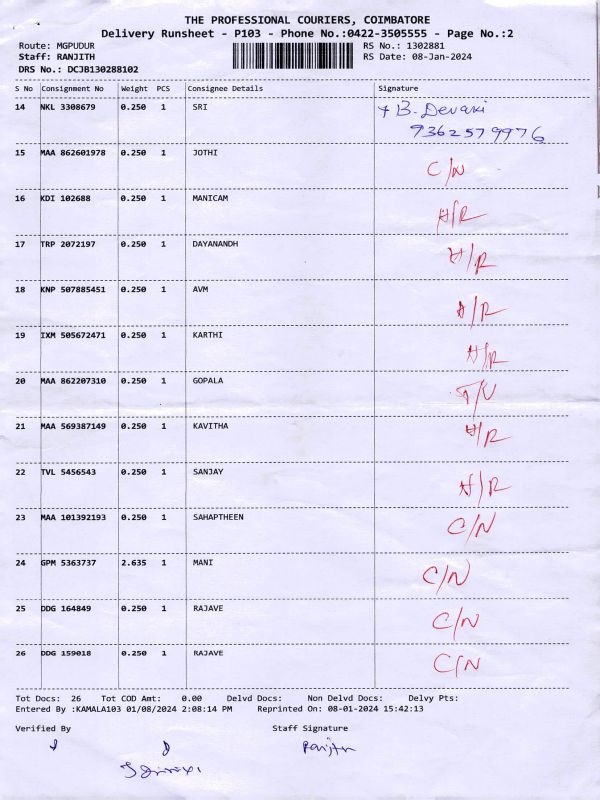 THE PROFESSIONAL COURIERS, COIMBATORE
Delivery Runsheet - P103 - Phone No.:0422-3505555 - Page No.:2
Route: MGPUDUR RS No.: 1302881
Staff: RANJITH RS Date: 08-Jan-2024
DRS No.: DCJB130288102
S No Consignment No Weight PCS Consignee Details Signature
14 NKL 3308679 0.250 1 SRI B. Devaki
9362579976
15 MAA 862601978 0.250 1 JOTHI C/N
16 KDI 102688 0.250 1 MANICAM H/R
17 TRP 2072197 0.250 1 DAYANANDH H/R
18 KNP 507885451 0.250 1 AVM A/R
19 IXM 505672471 0.250 1 KARTHI H/R
20 MAA 862207310 0.250 1 GOPALA
21 MAA 569387149 0.250 1 KAVITHA H/R
22 TVL 5456543 0.250 1 SANJAY H/R
23 MAA 101392193 0.250 1 SAHAPTHEEN C/N
24 GPM 5363737 2.635 1 MANI C/N
25 DDG 164849 0.250 1 RAJAVE C/N
26 DDG 159018 0.250 1 RAJAVE C/N
Tot Docs: 26 Tot COD Amt: 0.00 Delvd Docs: Non Delvd Docs: Delvy Pts:
Entered By :KAMALA103 01/08/2024 2:08:14 PM Reprinted On: 08-01-2024 15:42:13
Verified By Staff Signature